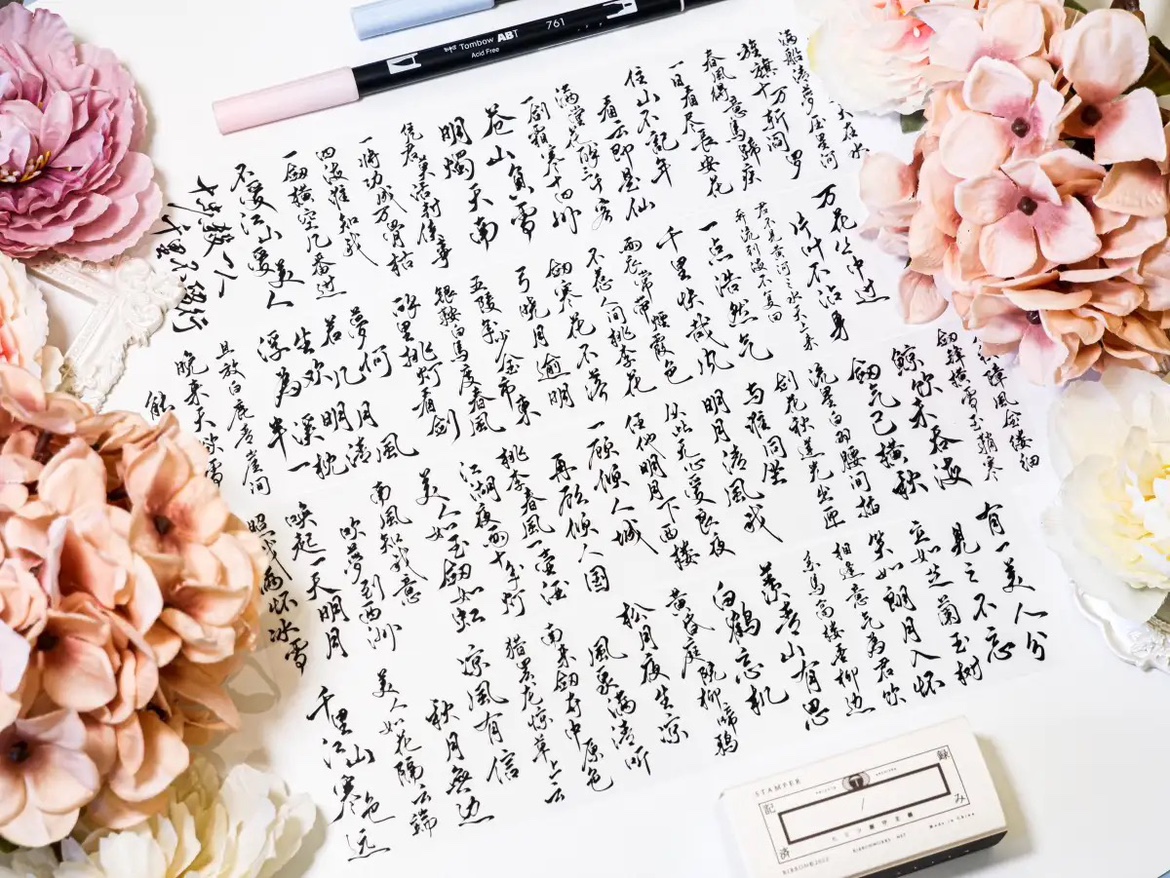 Tombow ABT
761
Acid Free
天在水
满船清梦压星河
旌旗十万斩阎罗
春风得意马蹄疾
一日看尽长安花
住山不记年
看云即是仙
满堂花醉三千客
一剑霜寒十四州
苍山负雪
明烛天南
凭君莫话封侯事
一将功成万骨枯
四海谁知我
一剑横空几番过
不爱江山爱美人
十步杀一人
千里不留行
万花丛中过
片叶不沾身
君不见黄河之水天上来
奔流到海不复回
一点浩然气
千里快哉风
常带烟霞色
不惹人间桃李花
剑寒花不落
弓晓月逾明
五陵年少金市东
银鞍白马度春风
醉里挑灯看剑
浮生若梦
为欢几何
半溪明月
一枕清风
且放白鹿青崖间
晚来天欲雪
能
障风金缕细
剑锋横雪玉鞘寒
鲸饮未吞海
剑气已横秋
流星白羽腰间插
剑花秋莲光出匣
与谁同坐
明月清风我
从此无心爱良夜
任他明月下西楼
一顾倾人城
再顾倾人国
桃李春风一壶酒
江湖夜雨十年灯
美人如玉剑如虹
南风知我意
吹梦到西洲
唤起一天明月
照我满怀冰雪
有一美人兮
见之不忘
宛如芝兰玉树
笑如朗月入怀
相逢意气为君饮
系马高楼垂柳边
羡青山有思
白鹤忘机
黄昏庭院柳啼鸦
松月夜生凉
风泉满清听
南来剑存中原色
草上云
凉风有信
秋月无边
美人如花隔云端
千里江山寒色远
STAMPER
録
み
記
済
Made in China